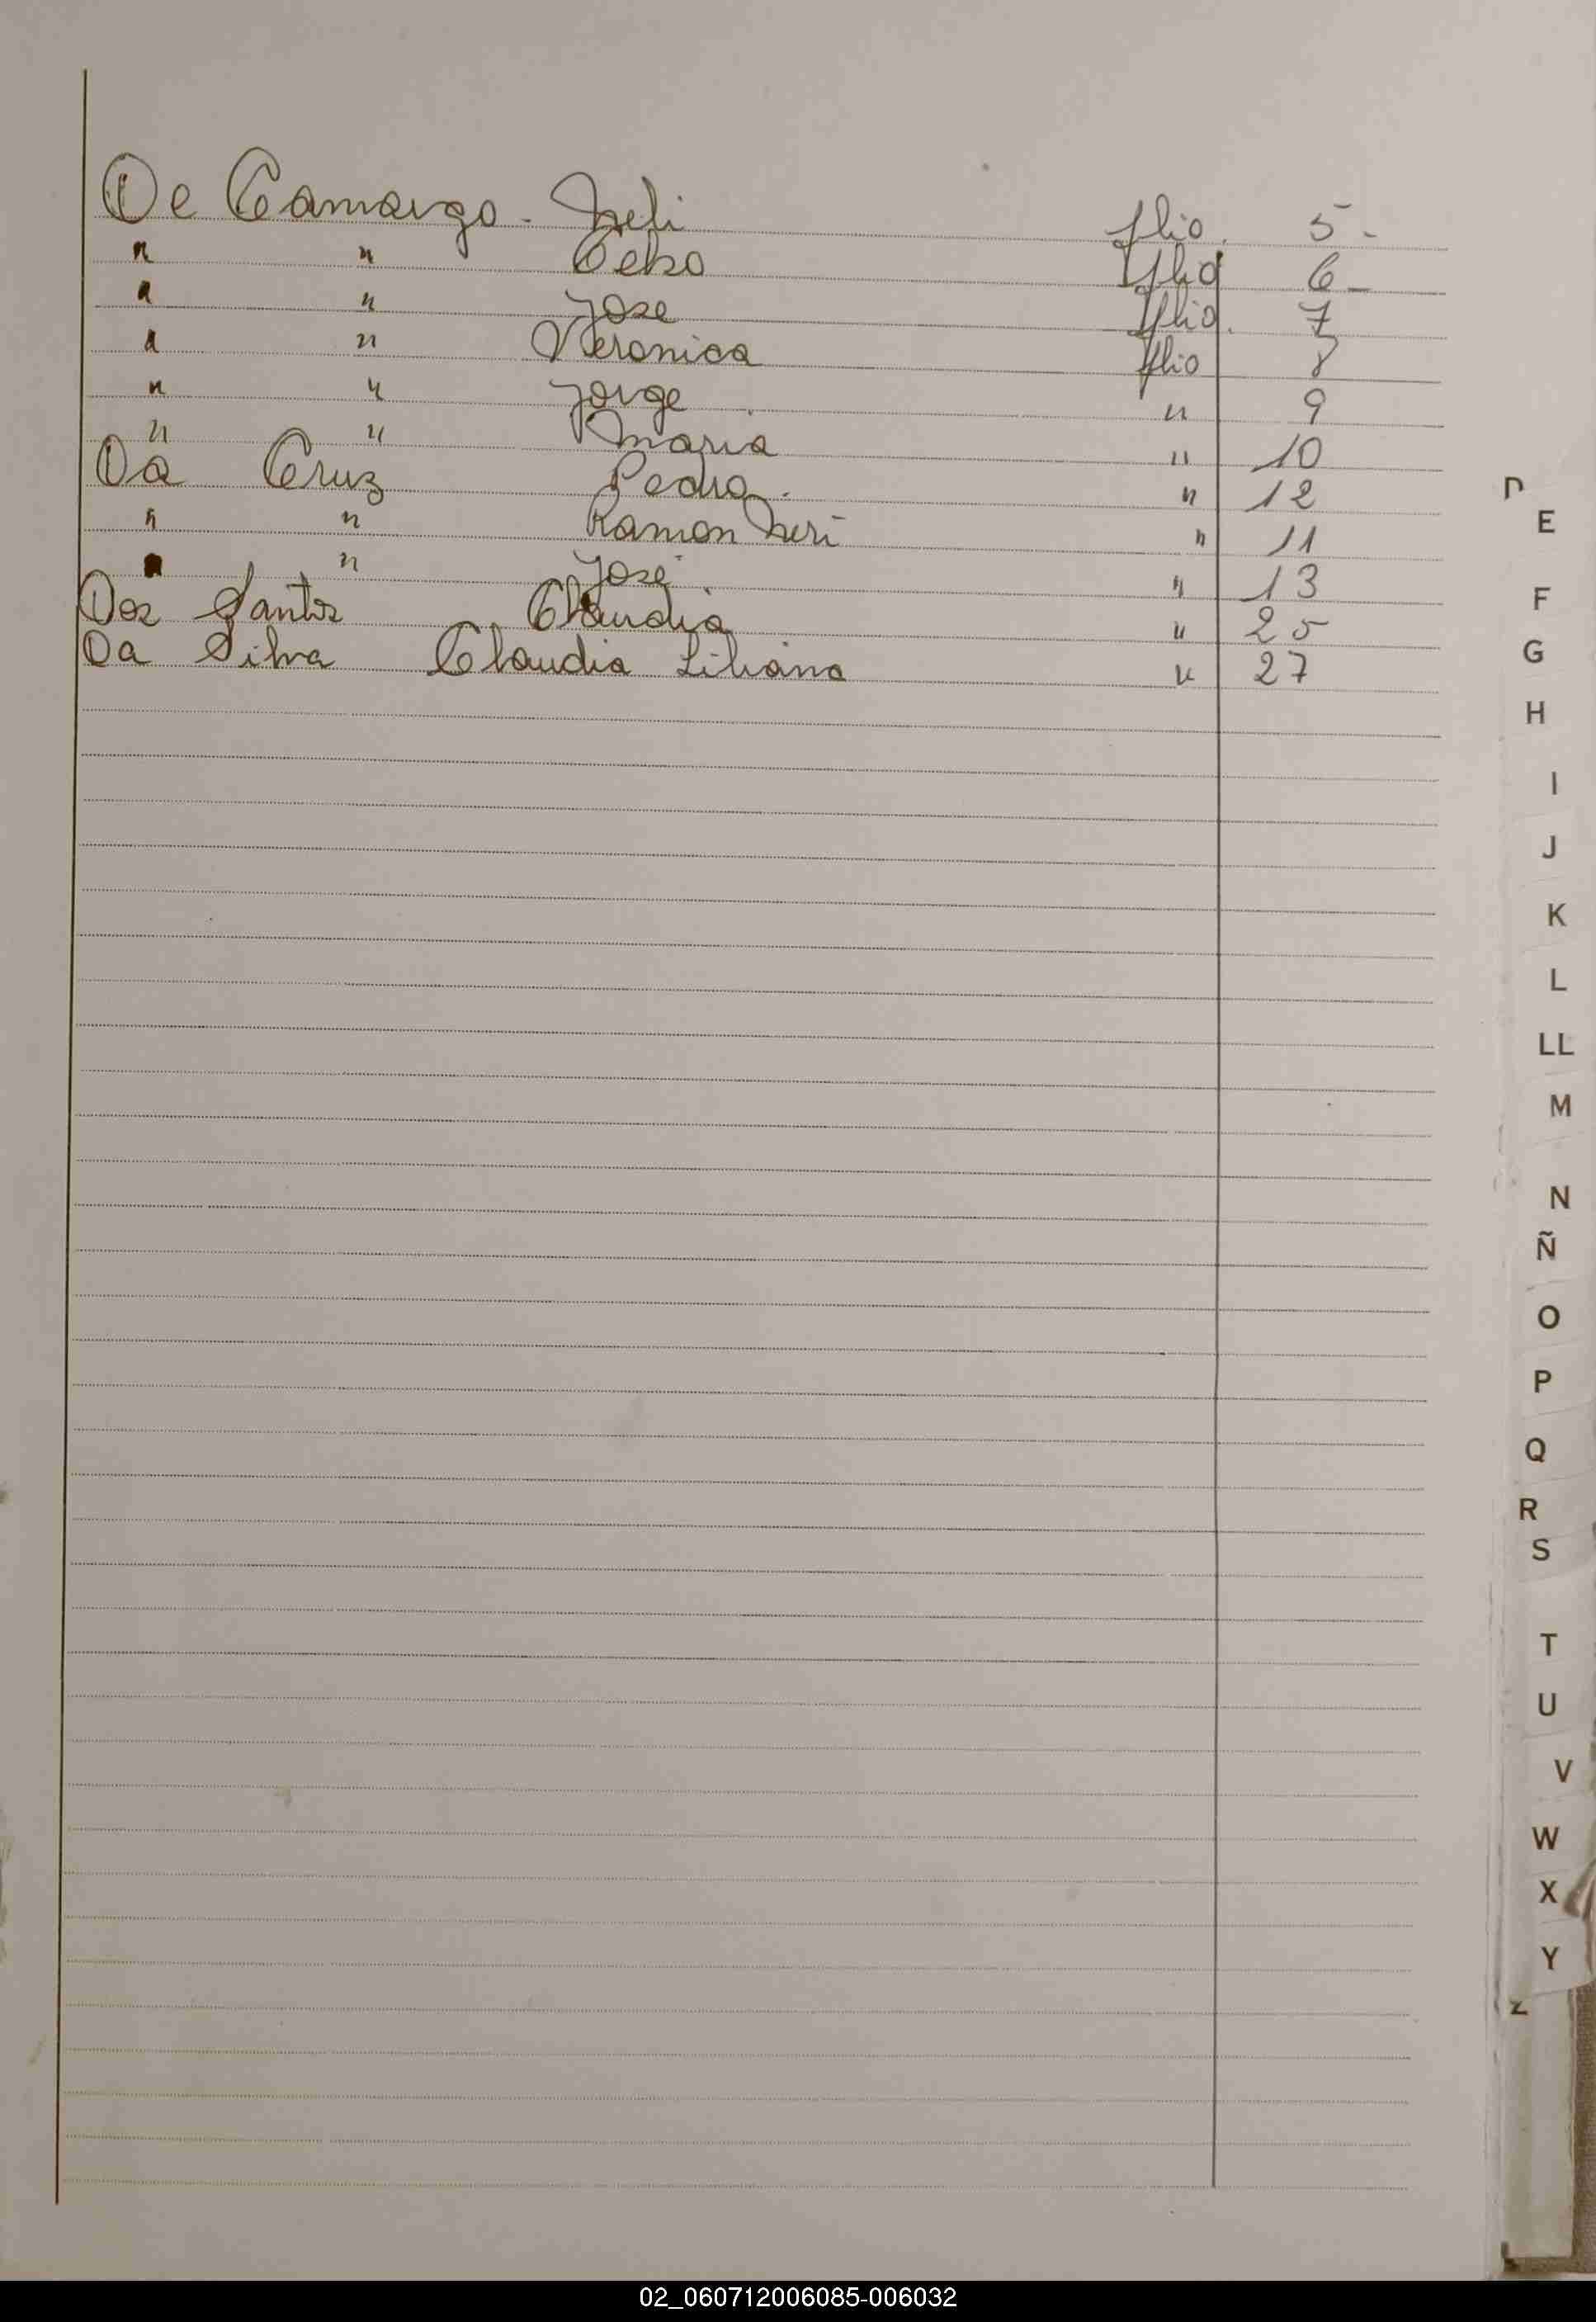 De Camargo - Neli flio. 5 -
" " Celso flio 6 -
" " Jose flio. 7
" " Veronica flio 8
" " Jorge " 9
" " Maria " 10
Da Cruz Pedro. " 12
" " Ramon Neri " 11
" José " 13
Dos Santos Claudia " 25
Da Silva Claudia Liliana " 27
D
E
F
G
H
I
J
K
L
LL
M
N
Ñ
O
P
Q
R
S
T
U
V
W
X
Y
Z
02_060712006085-006032